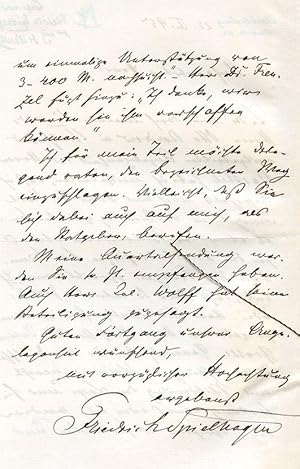 um einmalige Unterstützung von
3–400 M. nachsucht." Herr Dr. Fren-
zel fügt hinzu: „Ich denke, wir
werden sie ihm verschaffen
können."
Ich für mein Teil möchte drin-
gend raten, den bezeichneten Weg
einzuschlagen. Vielleicht, daß Sie
sich dabei auch auf mich, als
den Ratgeber, berufen.
Meine Quartalsendung wer-
den Sie z. Z. empfangen haben.
Auch Herr Jul. Wolff hat seine
Beteiligung zugesagt.
Guten Fortgang unsrer Ange-
legenheit wünschend,
mit vorzüglicher Hochachtung
ergebenst
Friedrich Spielhagen